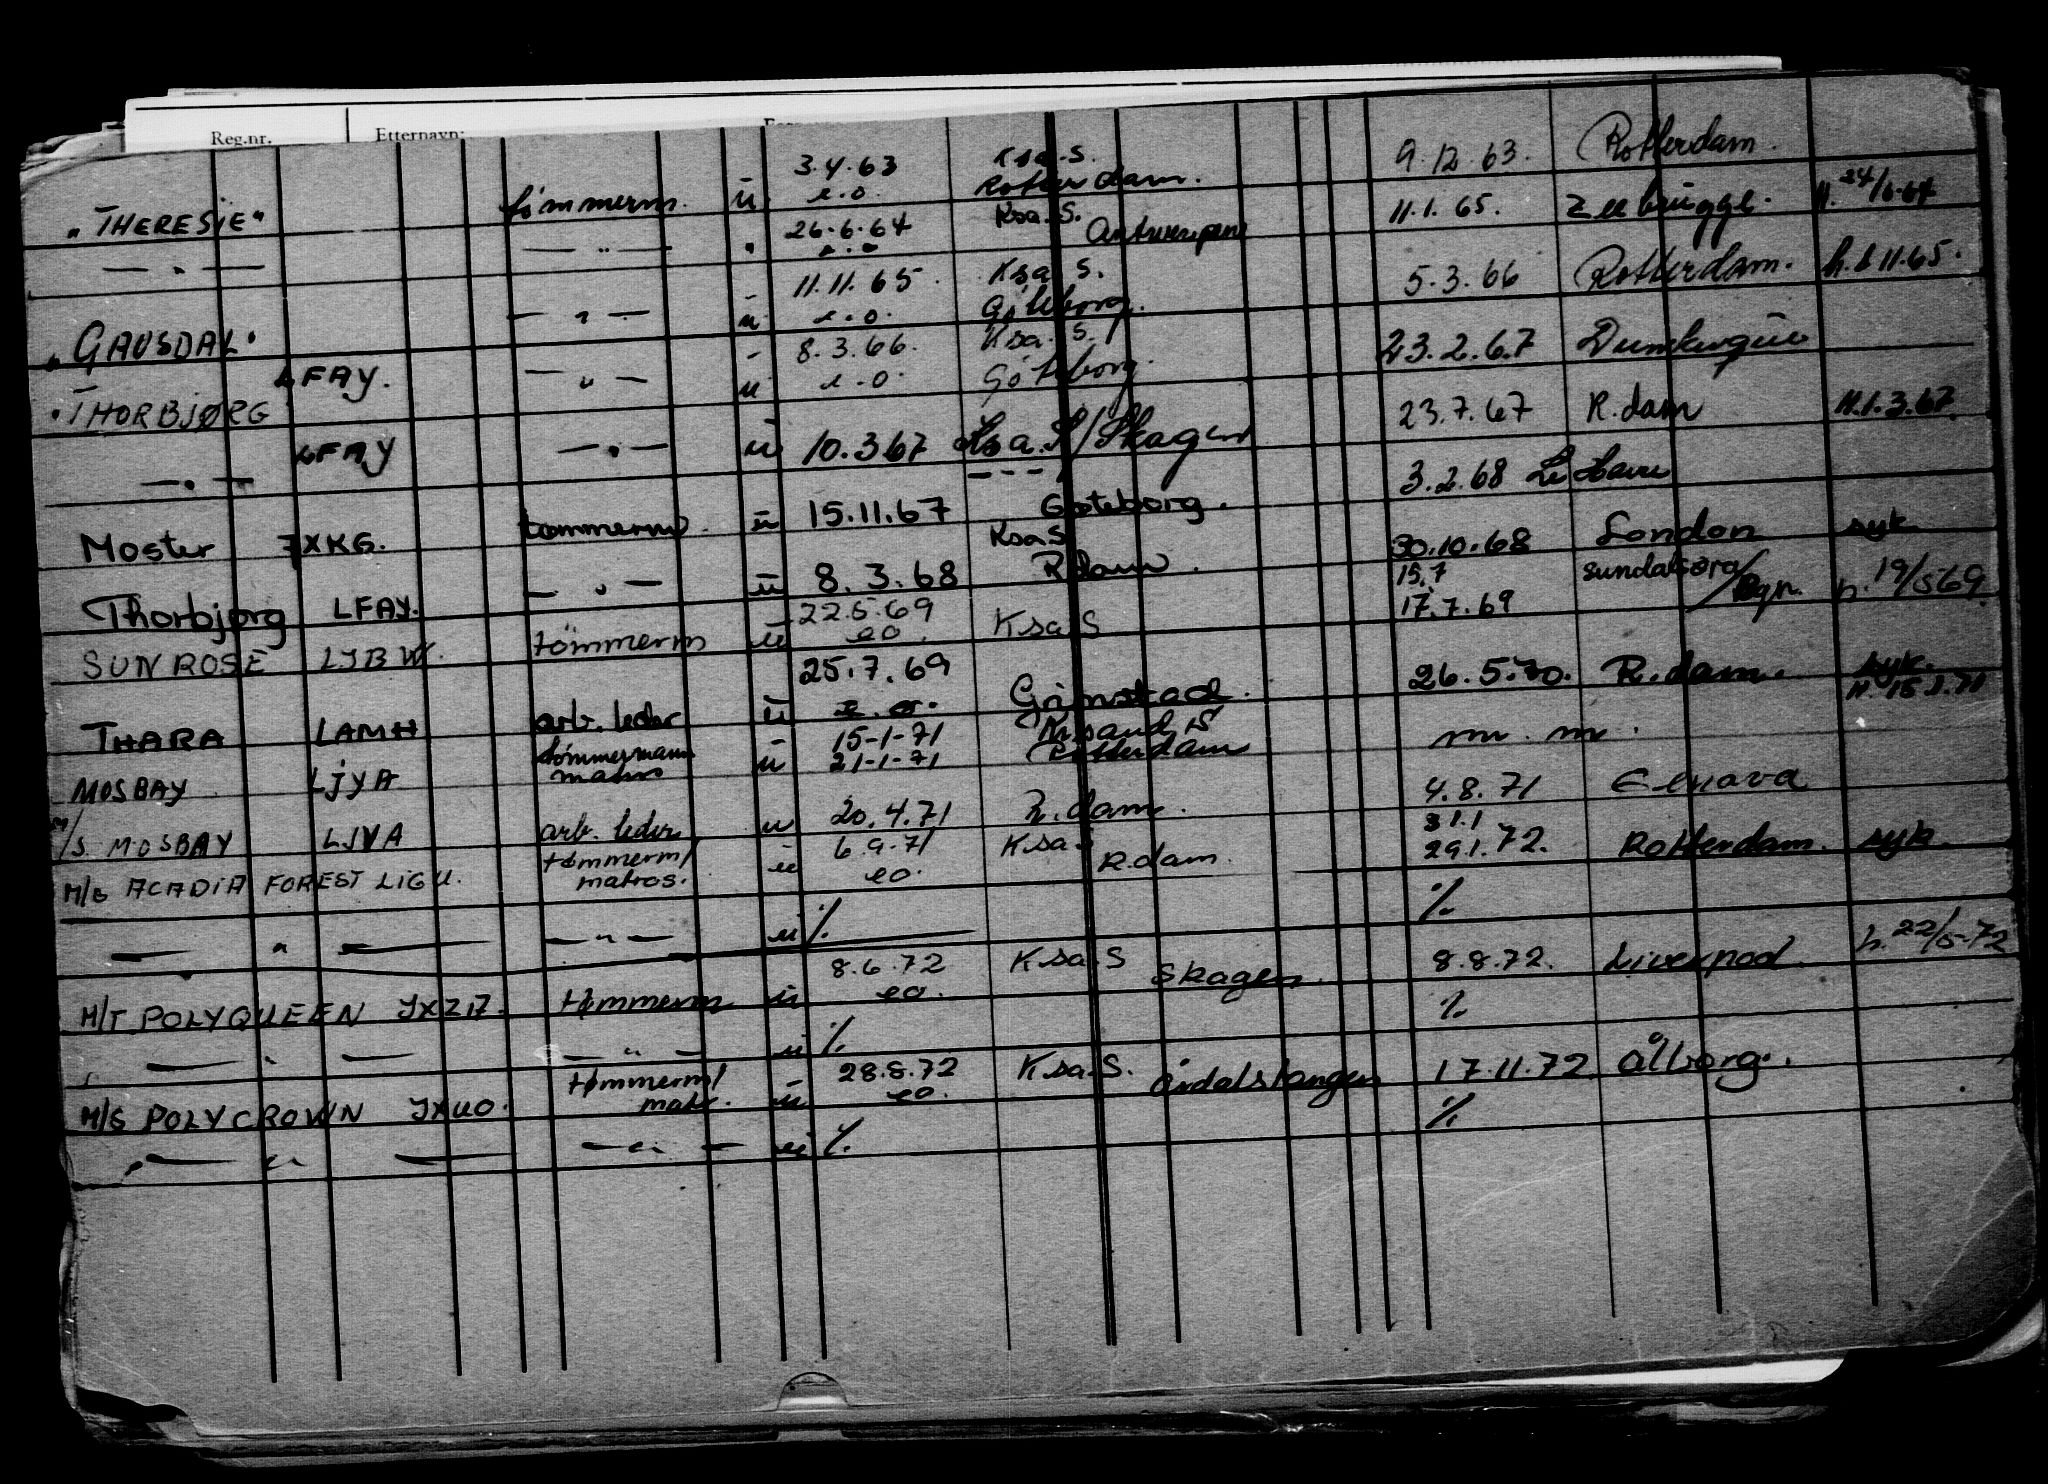 Reg.nr. Etternavn:
"THERESIE" tömmerm. ū 3.4.63 e.o. Ksa.S. Rotterdam. 9.12.63. Rotterdam.
— " — — " — " 26.6.64 e.o. Ksa.S. Antwerpen 11.1.65. Zeebrügge. H. 24/6-64
"GAUSDAL" — " — ū 11.11.65. e.o. Ksa.S. Göteborg. 5.3.66 Rotterdam. h. 8.11.65.
"THORBJØRG LFAY. — " — ū 8.3.66. e.o. Ksa.S. Göteborg. 23.2.67
— " — LFAY — " — ū 10.3.67 Ksa.S/Skagen 23.7.67 R.dam H.1.3.67
Moster JXKG. tömmerm. ū 15.11.67 Göteborg. 3.2.68 Le Havre
Thorbjørg LFAY. — " — ū 8.3.68 Ksa.S R.dam. 30.10.68 London syk
SUNROSE LJBW. tömmerm ū 22.5.69 eo. Ksa.S 15.7 17.7.69 sundalsøra/Bgn. h. 19/5 69
THARA LAMH arb. leder ū 25.7.69 e.o. Grimstad. 26.5.70. R.dam. syk.
MOSBAY LJYA tömmermann matros ū 15-1-71 21-1-71 Krsand S Rotterdam m. m. H. 15.1.71
M/S. MOSBAY LJYA arb. leder u 20.4.71 R.dam. 4.8.71
M/S ACADIA FOREST LIGU. tømmerm/ matros. ū 6.9.71 eo. Ksa.S R.dam. 31.1 29.1.72. Rotterdam. syk.
— " — — " — u %. %.
M/T POLYQUEEN JXZI7. tømmerm ū 8.6.72 eo. Ksa.S Skagen. 8.8.72. Liverpool. h. 22/5-72
— " — — " — u %. %.
M/S POLYCROWN JXUO. tømmerm/ matr. ū 28.8.72 eo. Ksa.S. årdalstangen 17.11.72 ålborg.
— " — — " — u %. %.